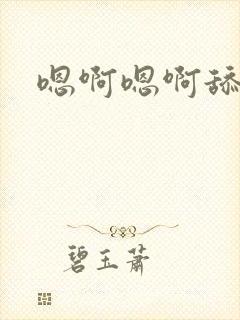 嗯啊嗯啊舔
碧玉萧